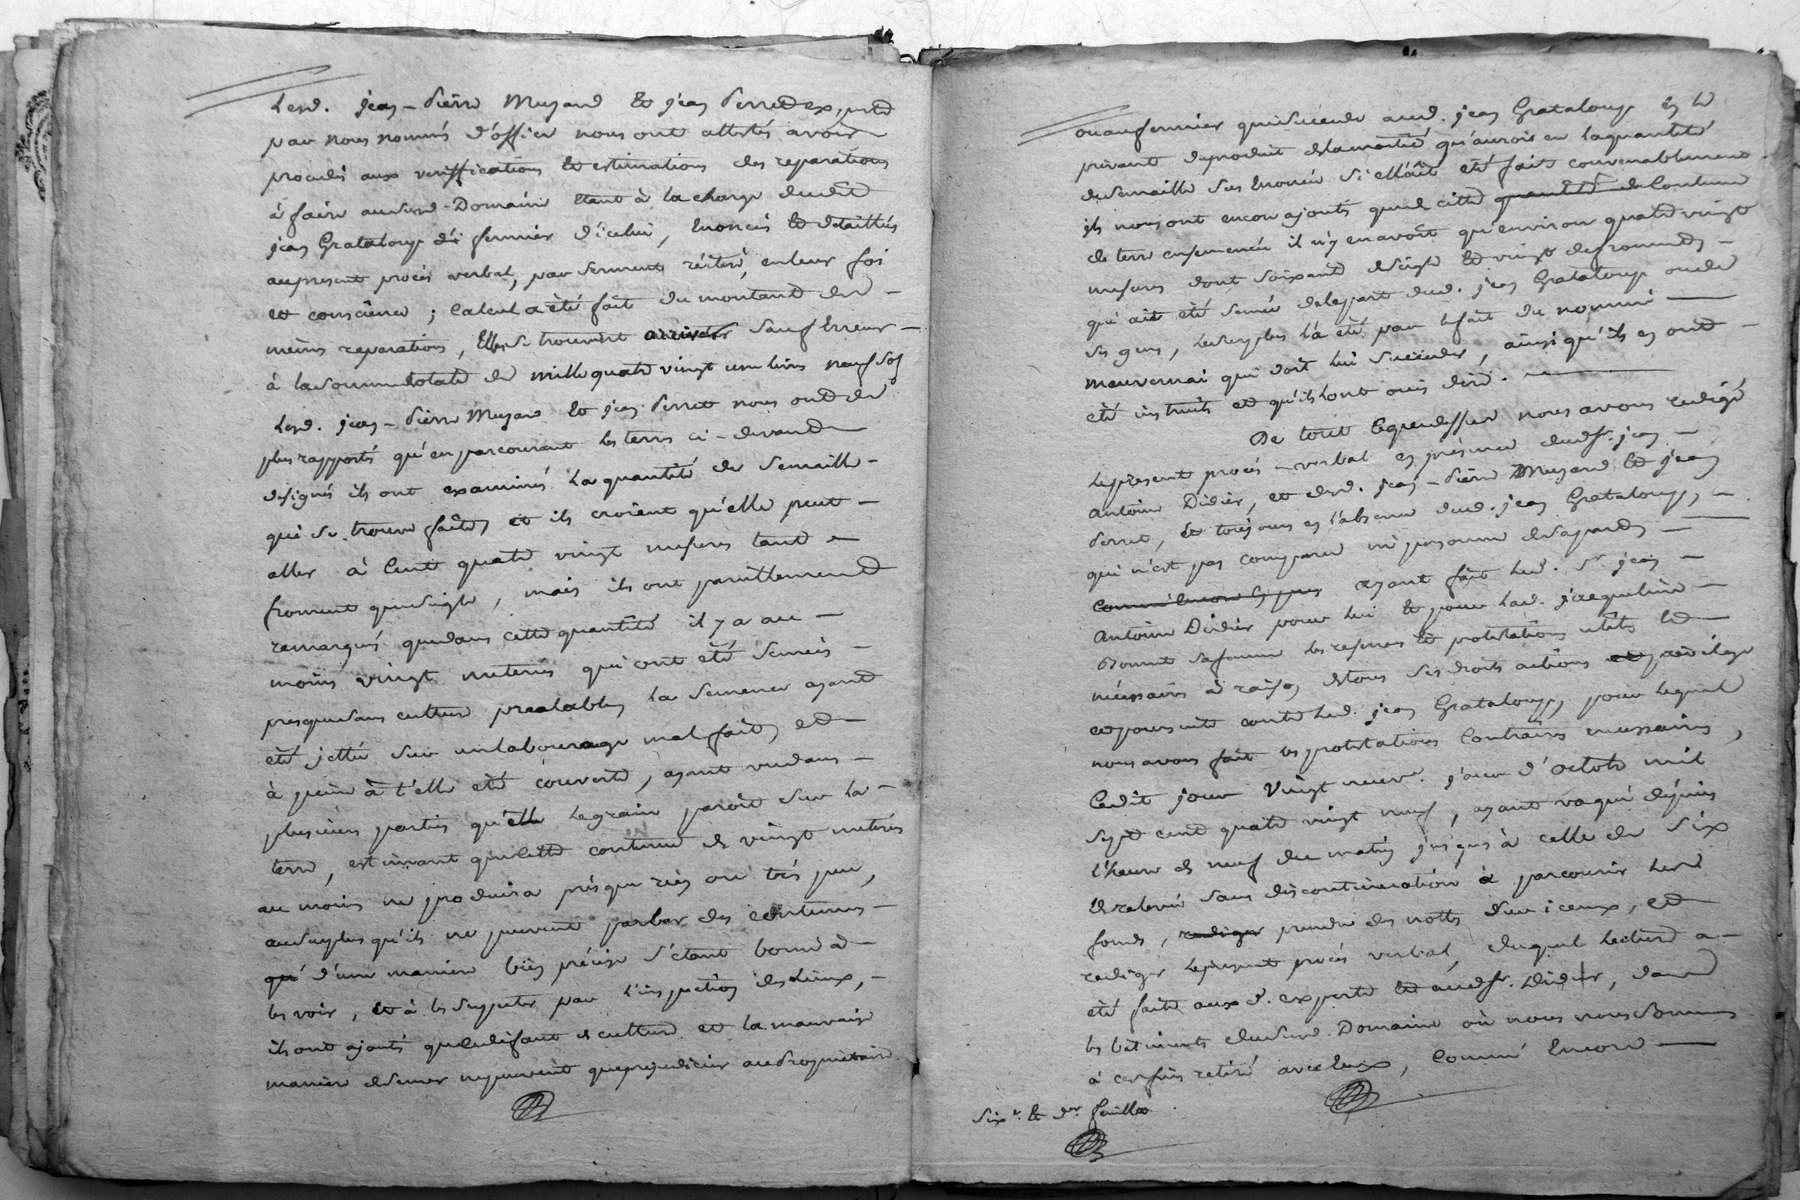 Lesd. jean-pierre Muzard et jean perret experts
par nous nommés d'office nous ont attestés avoir
procedé aux veriffications et estimations des reparations
à faire audit Domaine etant à la charge dudit
jean Grataloup dit fermier d'icelui, enoncés et detaillés
au present procés verbal, par serment réitéré, en leur foi
et conscience ; calcul a été fait du montant desd
memes reparations, elles se trouvent arriver sauf erreur
à la somme totale de mille quatre vingt une livres neuf sols
Lesd. jean-pierre Muzard et jean perret nous ont de
plus rapportés qu'en parcourant les terres ci-devant
designés ils ont examinés la quantité de semaille
qui se trouve faite, et ils croient qu'elle peut
aller à cent quatre vingt mesures tant
froment que seigle, mais ils ont pareillement
remarqués que dans cette quantité il y a au
moins vingt meterés qui ont été semées
presque sans culture prealable, la semence ayant
été jettée sur un labourage mal fait, et
à peine à t'elle été couverte, ayant vu dans
plusieurs parties qu'elle le grain paroit sur la
terre, estimant que cette contenue de vingt meterés
au moins ne produira présque rien ou très peu,
au surplus qu'ils ne peuvent parler des contenues
que d'une maniere bien précise s'étant borné à
les voir, et à les supputer par l'inspection des lieux,
ils ont ajouté que le defaut de culture et la mauvaise
maniere de semer ne peuvent que prejudicier au propriétaire
ou au fermier qui succede aud. jean Grataloup en le
privant du produit de la moitié qu'auroit eu la quantité
de semaille sus enoncée si elle eût été faite convenablement
ils nous ont encore ajouté que de cette quantité de contenue
de terre ensemencée il n'y en avoit qu'environ quatre vingt
mesures dont soixante de seigle et vingt de froment
qui ait été semée de la part dud. jean Grataloup ou de
ses gens, le surplus l'a été par le fait du nommé
mauvernai qui doit lui succeder, ainsi qu'ils en ont
été instruits et qu'ils l'ont ouis dire.
De tout ce que dessus nous avons redigé
le present procés-verbal en présence dudit sr. jean
Antoine Didier, et desd. jean-pierre Muzard et jean
perret, et toujours en l'absence dud. jean Grataloup,
qui n'est pas comparu ni personne de sa part
ayant fait led. sr. jean
Antoine Didier pour lui et pour lad. jacqueline
Bonnet sa femme les reserves et protestations utiles et
nécessaires à raison de tous ses droits actions et privilege
et poursuite contre led. jean Grataloup, pour lequel
nous avons fait les protestations contraires necessaires,
Cedit jour vingt neuv. jour d'octobre mil
sept cent quatre vingt neuf, ayant vaqué depuis
l'heure de neuf du matin jusqu'à celle de six
de relevée sans discontinuation à parcourir lesd
fonds, rediger prendre des nottes sur iceux, et
rediger le present procés verbal, duquel lecture a
été faite auxd. experts et audit sr. Didier, dans
les batiments dudit Domaine où nous nous sommes
à ces fins retiré avec eux, comme encore
Six.e et d.er feuillet